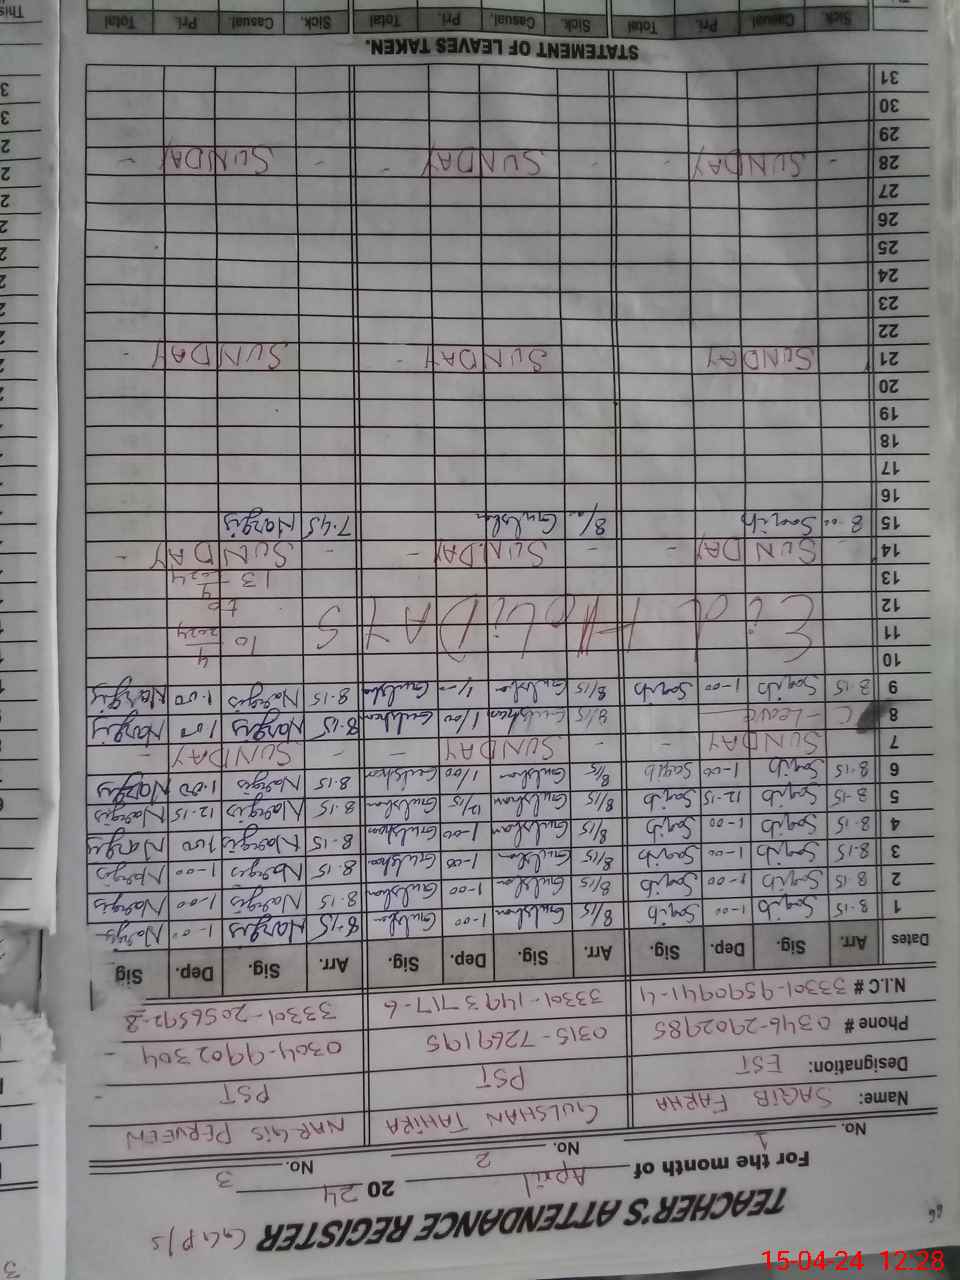 TEACHER'S ATTENDANCE REGISTER GGP/S
For the month of April 2024
No. 1 No. 2 No. 3
Name: SAQIB FARHA GULSHAN TAHIRA NARGIS PERVEEN
Designation: EST PST PST
Phone # 0346-2902985 0315-7269195 0304-9902304
N.I.C # 33301-9590941-4 33301-1493717-6 33301-2056592-8
Dates Arr. Sig. Dep. Sig. Arr. Sig. Dep. Sig. Arr. Sig. Dep. Sig
1 8-15 Saqib 1-00 Saqib 8/15 Gulshan 1-00 Gulshan 8-15 Nargis 1-00 Nargis
2 8-15 Saqib 1-00 Saqib 8/15 Gulshan 1-00 Gulshan 8-15 Nargis 1-00 Nargis
3 8-15 Saqib 1-00 Saqib 8/15 Gulshan 1-00 Gulshan 8-15 Nargis 1-00 Nargis
4 8-15 Saqib 1-00 Saqib 8/15 Gulshan 1-00 Gulshan 8-15 Nargis 100 Nargis
5 8-15 Saqib 12-15 Saqib 8/15 Gulshan 12/15 Gulshan 8-15 Nargis 12-15 Nargis
6 8-15 Saqib 1-00 Saqib 8/15 Gulshan 1/00 Gulshan 8-15 Nargis 1-00 Nargis
7 SUNDAY - - SUNDAY - - SUNDAY -
8 C - Leave 8/15 Gulshan 1/00 Gulshan 8-15 Nargis 100 Nargis
9 8-15 Saqib 1-00 Saqib 8/15 Gulshan 1/00 Gulshan 8-15 Nargis 1.00 Nargis
10
11 Eid HOLIDAYS 10 4/2024
12 to
13 13 4/2024
14 - SUNDAY - - SUNDAY - - SUNDAY -
15 8-00 Saqib 8/00 Gulshan 7-45 Nargis
16
17
18
19
20
21 SUNDAY SUNDAY - SUNDAY -
22
23
24
25
26
27
28 - SUNDAY - - SUNDAY - - SUNDAY -
29
30
31
STATEMENT OF LEAVES TAKEN.
Sick. Casual. Pri. Total Sick. Casual. Pri. Total Sick. Casual. Pri. Total
15-04-24 12:28